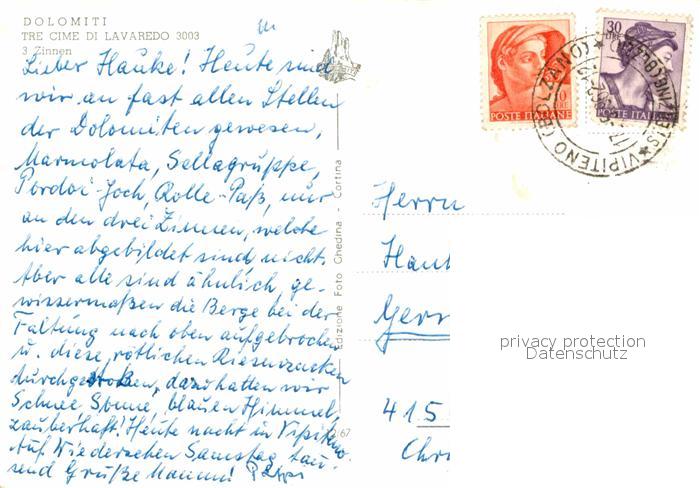 DOLOMITI
TRE CIME DI LAVAREDO 3003
3 Zinnen
Lieber Hauke! Heute sind
wir an fast allen Stellen
der Dolomiten gewesen,
Marmolata, Sellagruppe,
Pordoi-Joch, Rolle-Paß, nur
an den drei Zinnen, welche
hier abgebildet sind, nicht.
Aber alle sind ähnlich, ge-
wissermaßen die Berge bei der
Faltung nach oben aufgebrochen
u. diese rötlichen Riesenzacken
dazu hatten wir
Schnee, Sonne, blauen Himmel,
zauberhaft! Heute nacht in Vipiteno.
Auf Wiedersehen Samstag tau-
send Grüße Mammi Pappi
Edizione Foto Ghedina - Cortina
67
10
LIRE
POSTE ITALIANE
30
LIRE
POSTE ITALIANE
VIPITENO (BOLZANO)
Herrn
Hau
Germ
415
Chr
privacy protection
Datenschutz